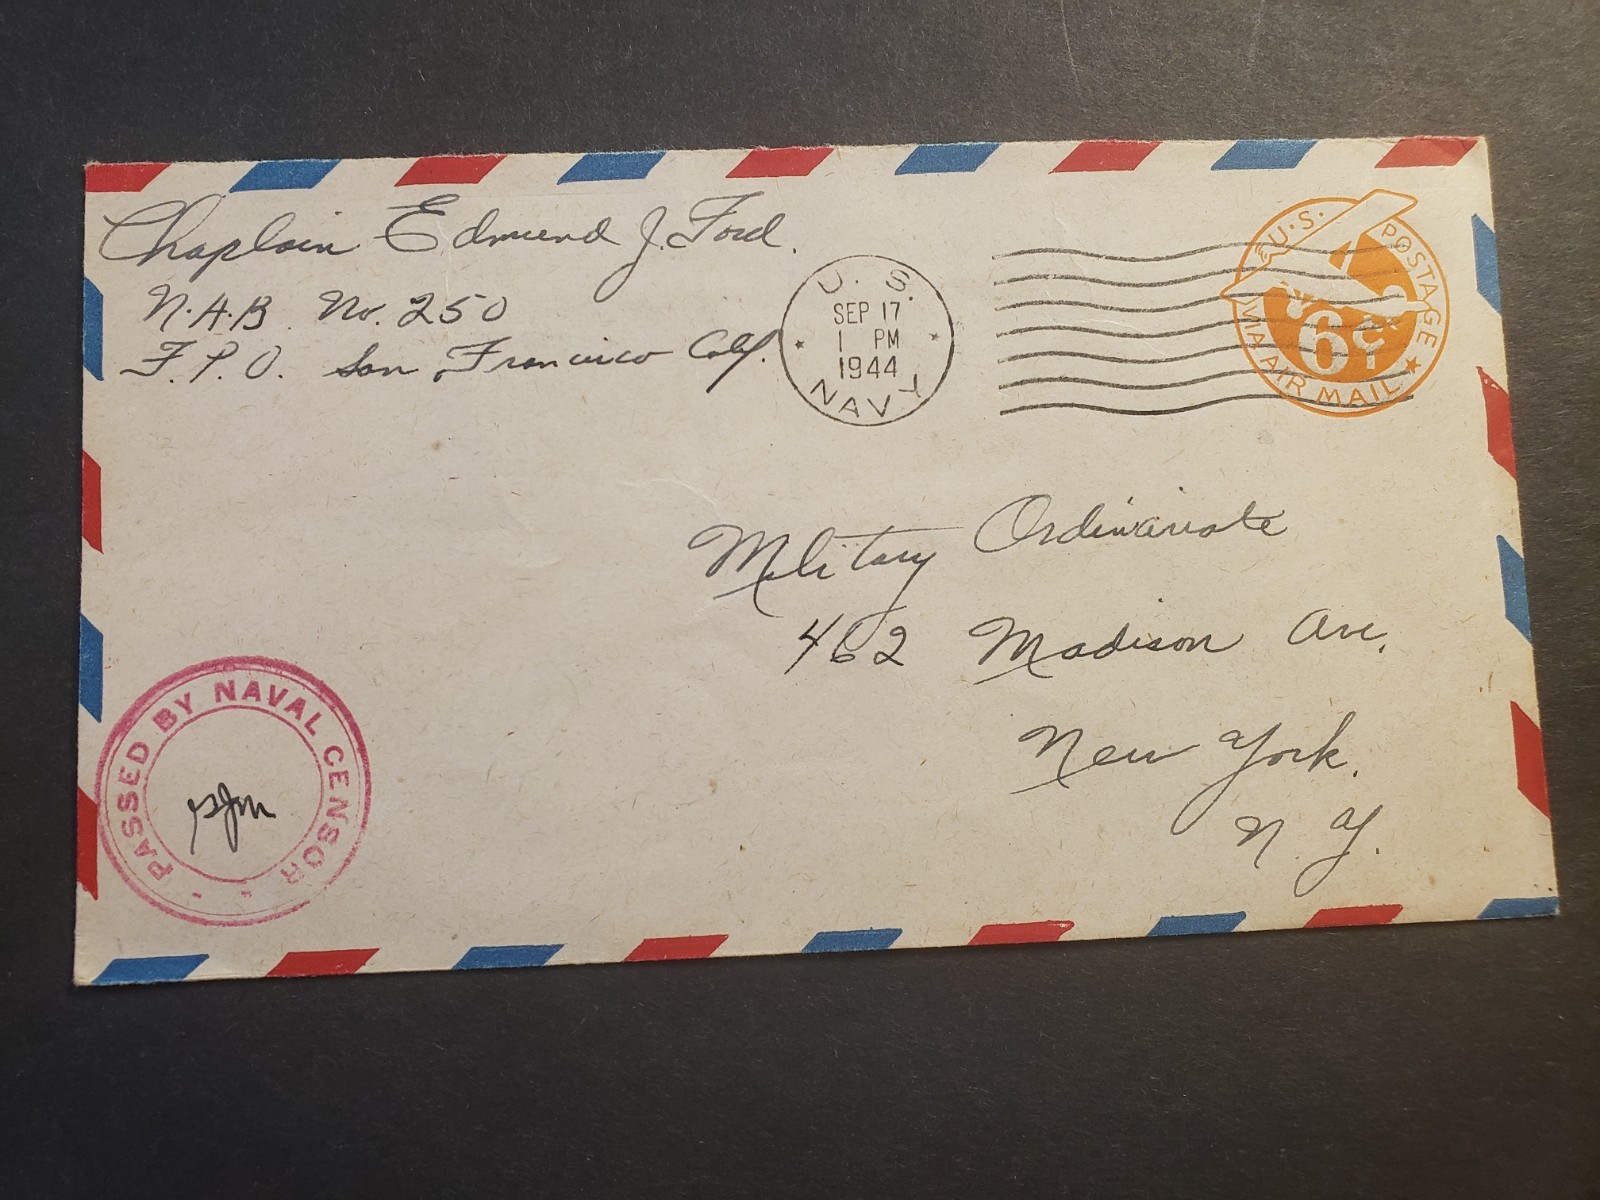 Chaplain Edmund J. Ford.
N.A.B. No. 250
F.P.O. San Francisco Calif.
U. S.
SEP 17
1 PM
1944
NAVY
U.S. POSTAGE
6¢
VIA AIR MAIL
Military Ordinariate
462 Madison Ave.
New York.
N.Y.
PASSED BY NAVAL CENSOR